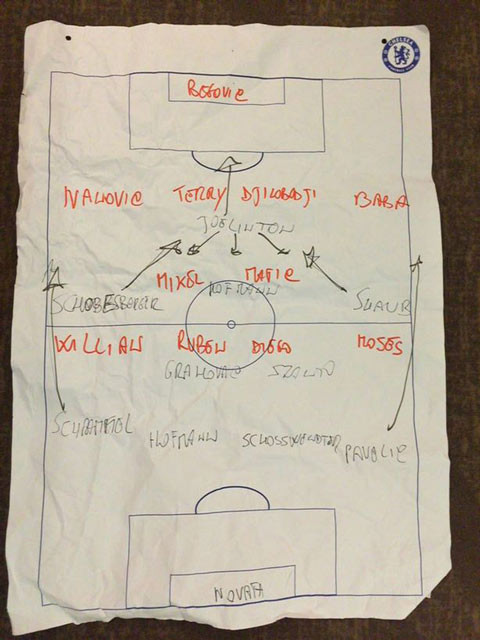 CHELSEA
BEGOVIC
IVANOVIC TERRY DJILOBODJI BABA
JOELINTON
MIKEL MATIC
HOFMANN
SCHOBESBERGER SCHAUB
WILLIAN RUBEN DIEGO MOSES
GRAHOVAC SZANTO
SCHRAMMEL
HOFMANN SCHOSSWENDTER PAVELIC
NOVOTA